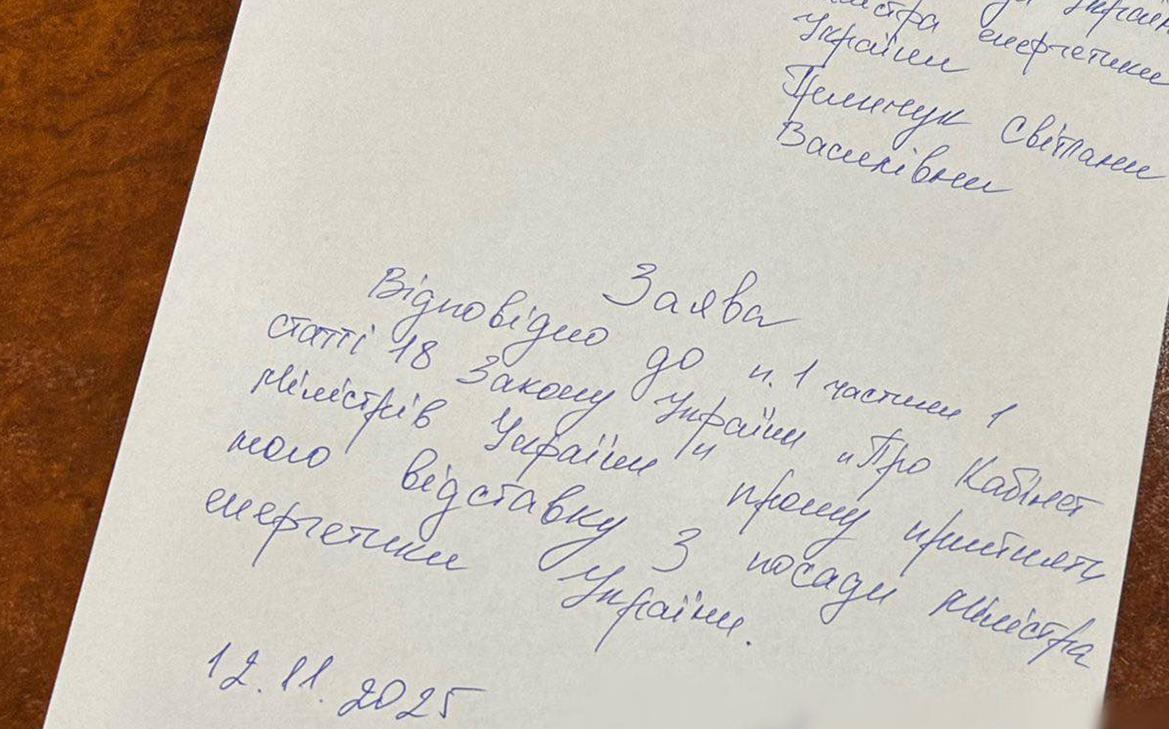 України
міністра енергетики
України
Гринчук Світлани
Василівни
Заява
Відповідно до п.1 частини 1
статті 18 Закону України „Про Кабінет
Міністрів України" прошу прийняти
мою відставку з посади міністра
енергетики України.
12.11.2025